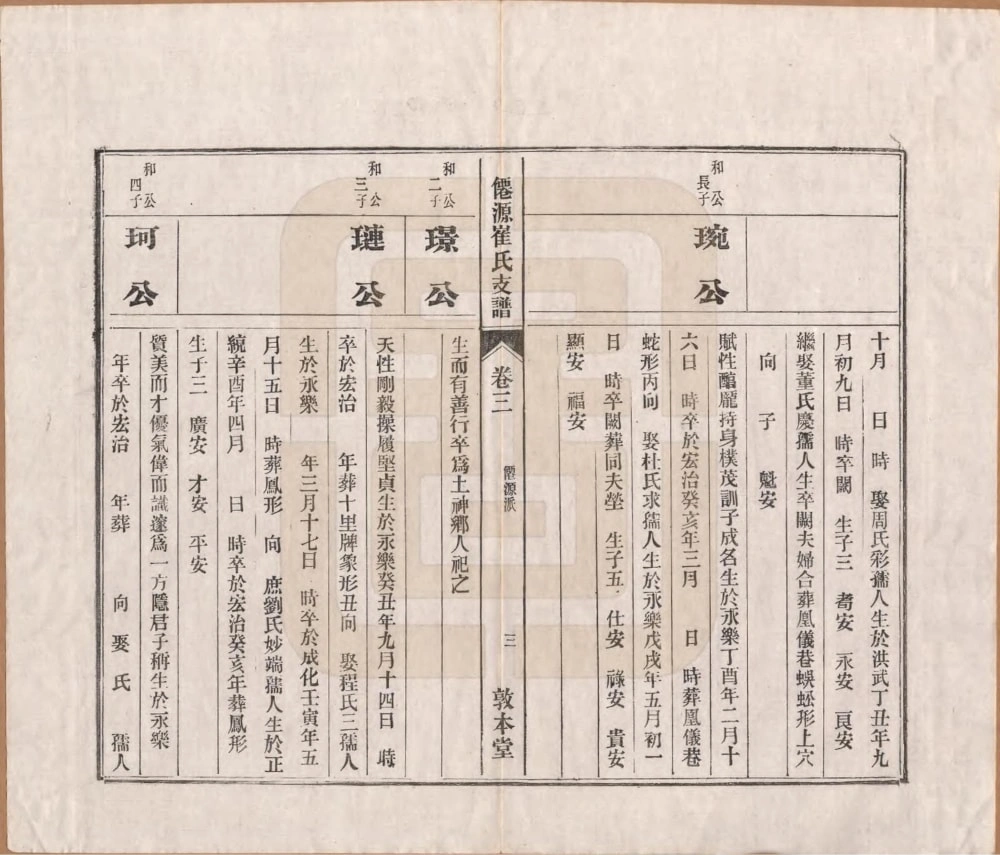 十月　日　時　娶周氏彩孺人生於洪武丁丑年九
月初九日　時卒闕　生子三　耇安　永安　良安
繼娶董氏慶孺人生卒闕夫婦合葬凰儀巷蜈蚣形上穴
向　子　魁安
和公長子
琬公
賦性醕龐持身樸茂訓子成名生於永樂丁酉年二月十
六日　時卒於宏治癸亥年三月　日　時葬凰儀巷
蛇形丙向　娶杜氏求孺人生於永樂戊戌年五月初一
日　時卒闕葬同夫塋　生子五　仕安　祿安　貴安
顯安　福安
僊源崔氏支譜
卷三
僊源派
三
敦本堂
和公二子
璟公
生而有善行卒爲土神鄉人祀之
和公三子
璉公
天性剛毅操履堅貞生於永樂癸丑年九月十四日　時
卒於宏治　年葬十里牌象形丑向　娶程氏三孺人
生於永樂　年三月十七日　時卒於成化壬寅年五
月十五日　時葬鳳形　向　庶劉氏妙端孺人生於正
統辛酉年四月　日　時卒於宏治癸亥年葬鳳形
生子三　廣安　才安　平安
和公四子
珂公
質美而才優氣偉而識遠爲一方隱君子稱生於永樂
年卒於宏治　年葬　向娶　氏　孺人